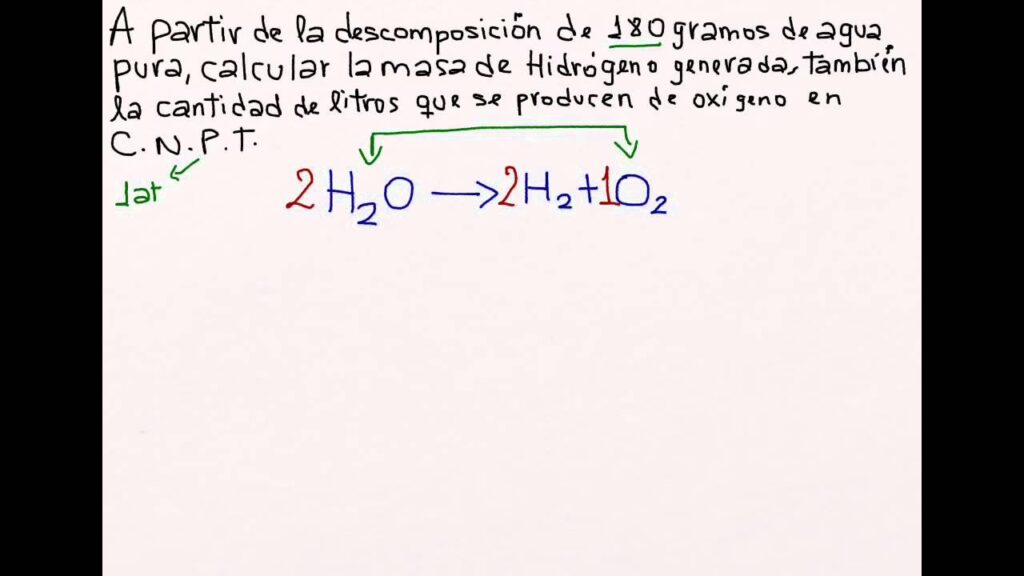 A partir de la descomposición de 180 gramos de agua
pura, calcular la masa de Hidrógeno generada, también
la cantidad de litros que se producen de oxígeno en
C.N.P.T.
1at
2H₂O → 2H₂ + 1O₂